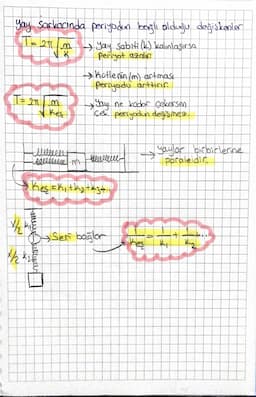 Yay sarkacında periyodun bağlı olduğu değişkenler
T = 2π √m/k → Yay sabiti (k) kalınlaşırsa
periyot azalır
→ Kütlenin (m) artması
periyodu arttırır.
T = 2π √m/keş → Yay ne kadar çekersen
çek periyodun değişmez.
m → yaylar birbirlerine
paraleldir.
Keş = k₁ + k₂ + k₃+
x/2 k₁
→ Seri bağlar
1/Keş = 1/k₁ + 1/k₂ ...
x/2 k₂